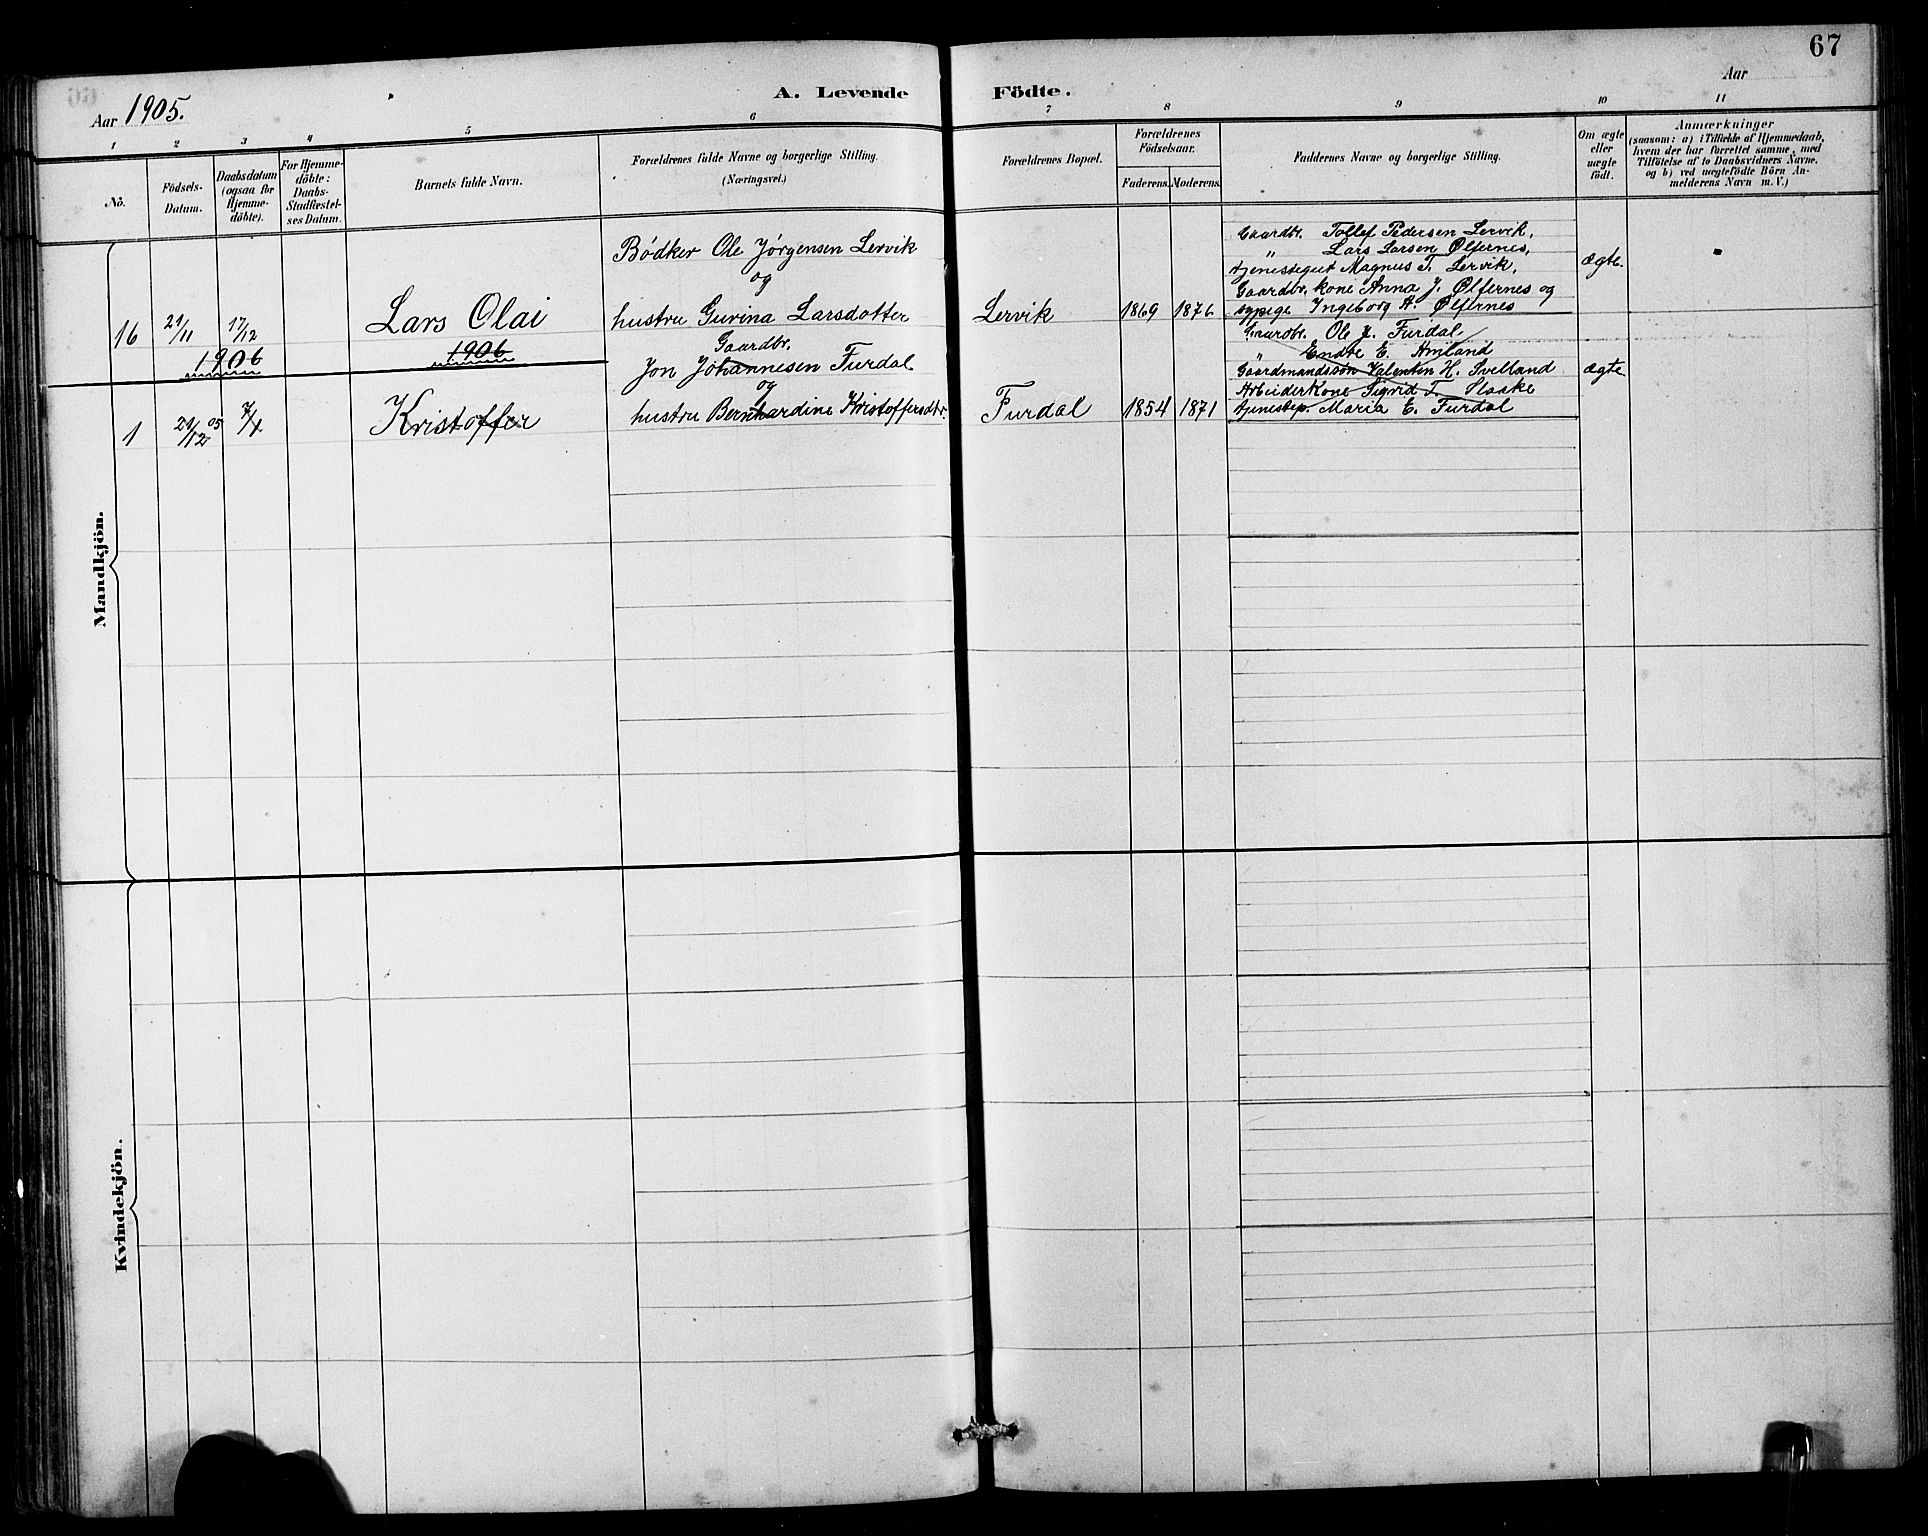 67
Aar 1905.
A. Levende Födte.
Aar
1 2 3 4 5 6 7 8 9 10 11
Nô.
Födsels-Datum.
Daabsdatum (ogsaa for Hjemmedöbte).
For Hjemmedöbte: Daabs-Stadfæstelses Datum.
Barnets fulde Navn.
Forældrenes fulde Navne og borgerlige Stilling.
(Næringsvei.)
Forældrenes Bopæl.
Forældrenes Födselsaar.
Faderens. Moderens.
Faddernes Navne og borgerlige Stilling.
Om ægte eller uægte födt.
Anmærkninger
(saasom: a) i Tilfælde af Hjemmedaab,
hvem der har forrettet samme, med
Tilföielse af to Daabsvidners Navne,
og b) ved uægtefödte Börn An-
melderens Navn m. V.)
Mandkjön.
16
21/11
17/12
Lars Olai
Bödker Ole Jörgensen Lervik
og
hustru Gurina Larsdotter
Lervik
1869
1876
Gaardbr. Tollef Pedersen Lervik,
" Lars Larsen Ølfernes,
tjenestegut Magnus T. Lervik,
Gaardbr. kone Anna J. Ølfernes og
sypige Ingeborg A. Ølfernes
ægte.
1906
1906
1
21/12 05
7/1
Kristoffer
Gaardbr.
Jon Johannesen Furdal
og
hustru Bernhardine Kristoffersdtr.
Furdal
1854
1871
Gaardbr. Ole J. Furdal
" Endre E. Amland
Gaardmandssön Valentin H. Svelland
Arbeiderkone Sigrid T. Slaake
tjenestep. Maria E. Furdal
ægte
Kvindekjön.